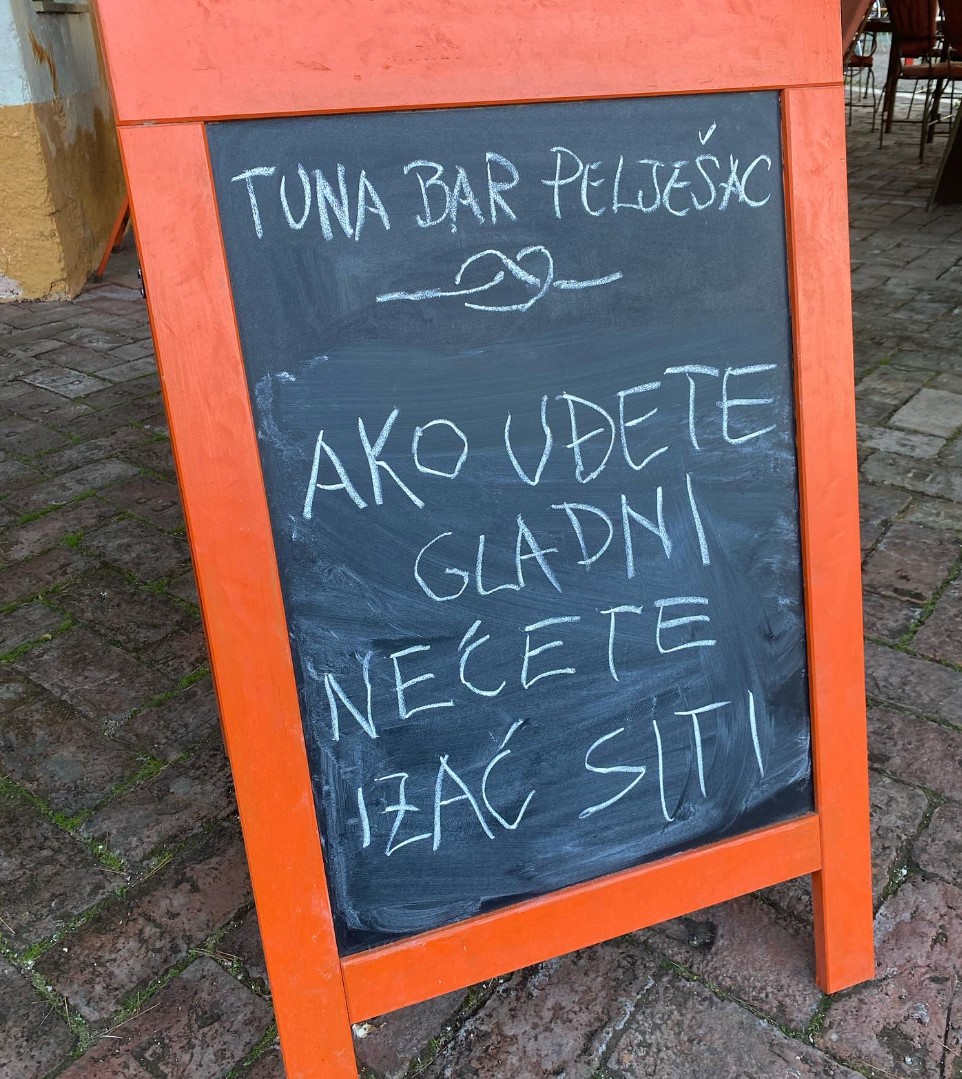 TUNA BAR PELJEŠAC
AKO UĐETE
GLADNI
NEĆETE
IZAĆ SITI